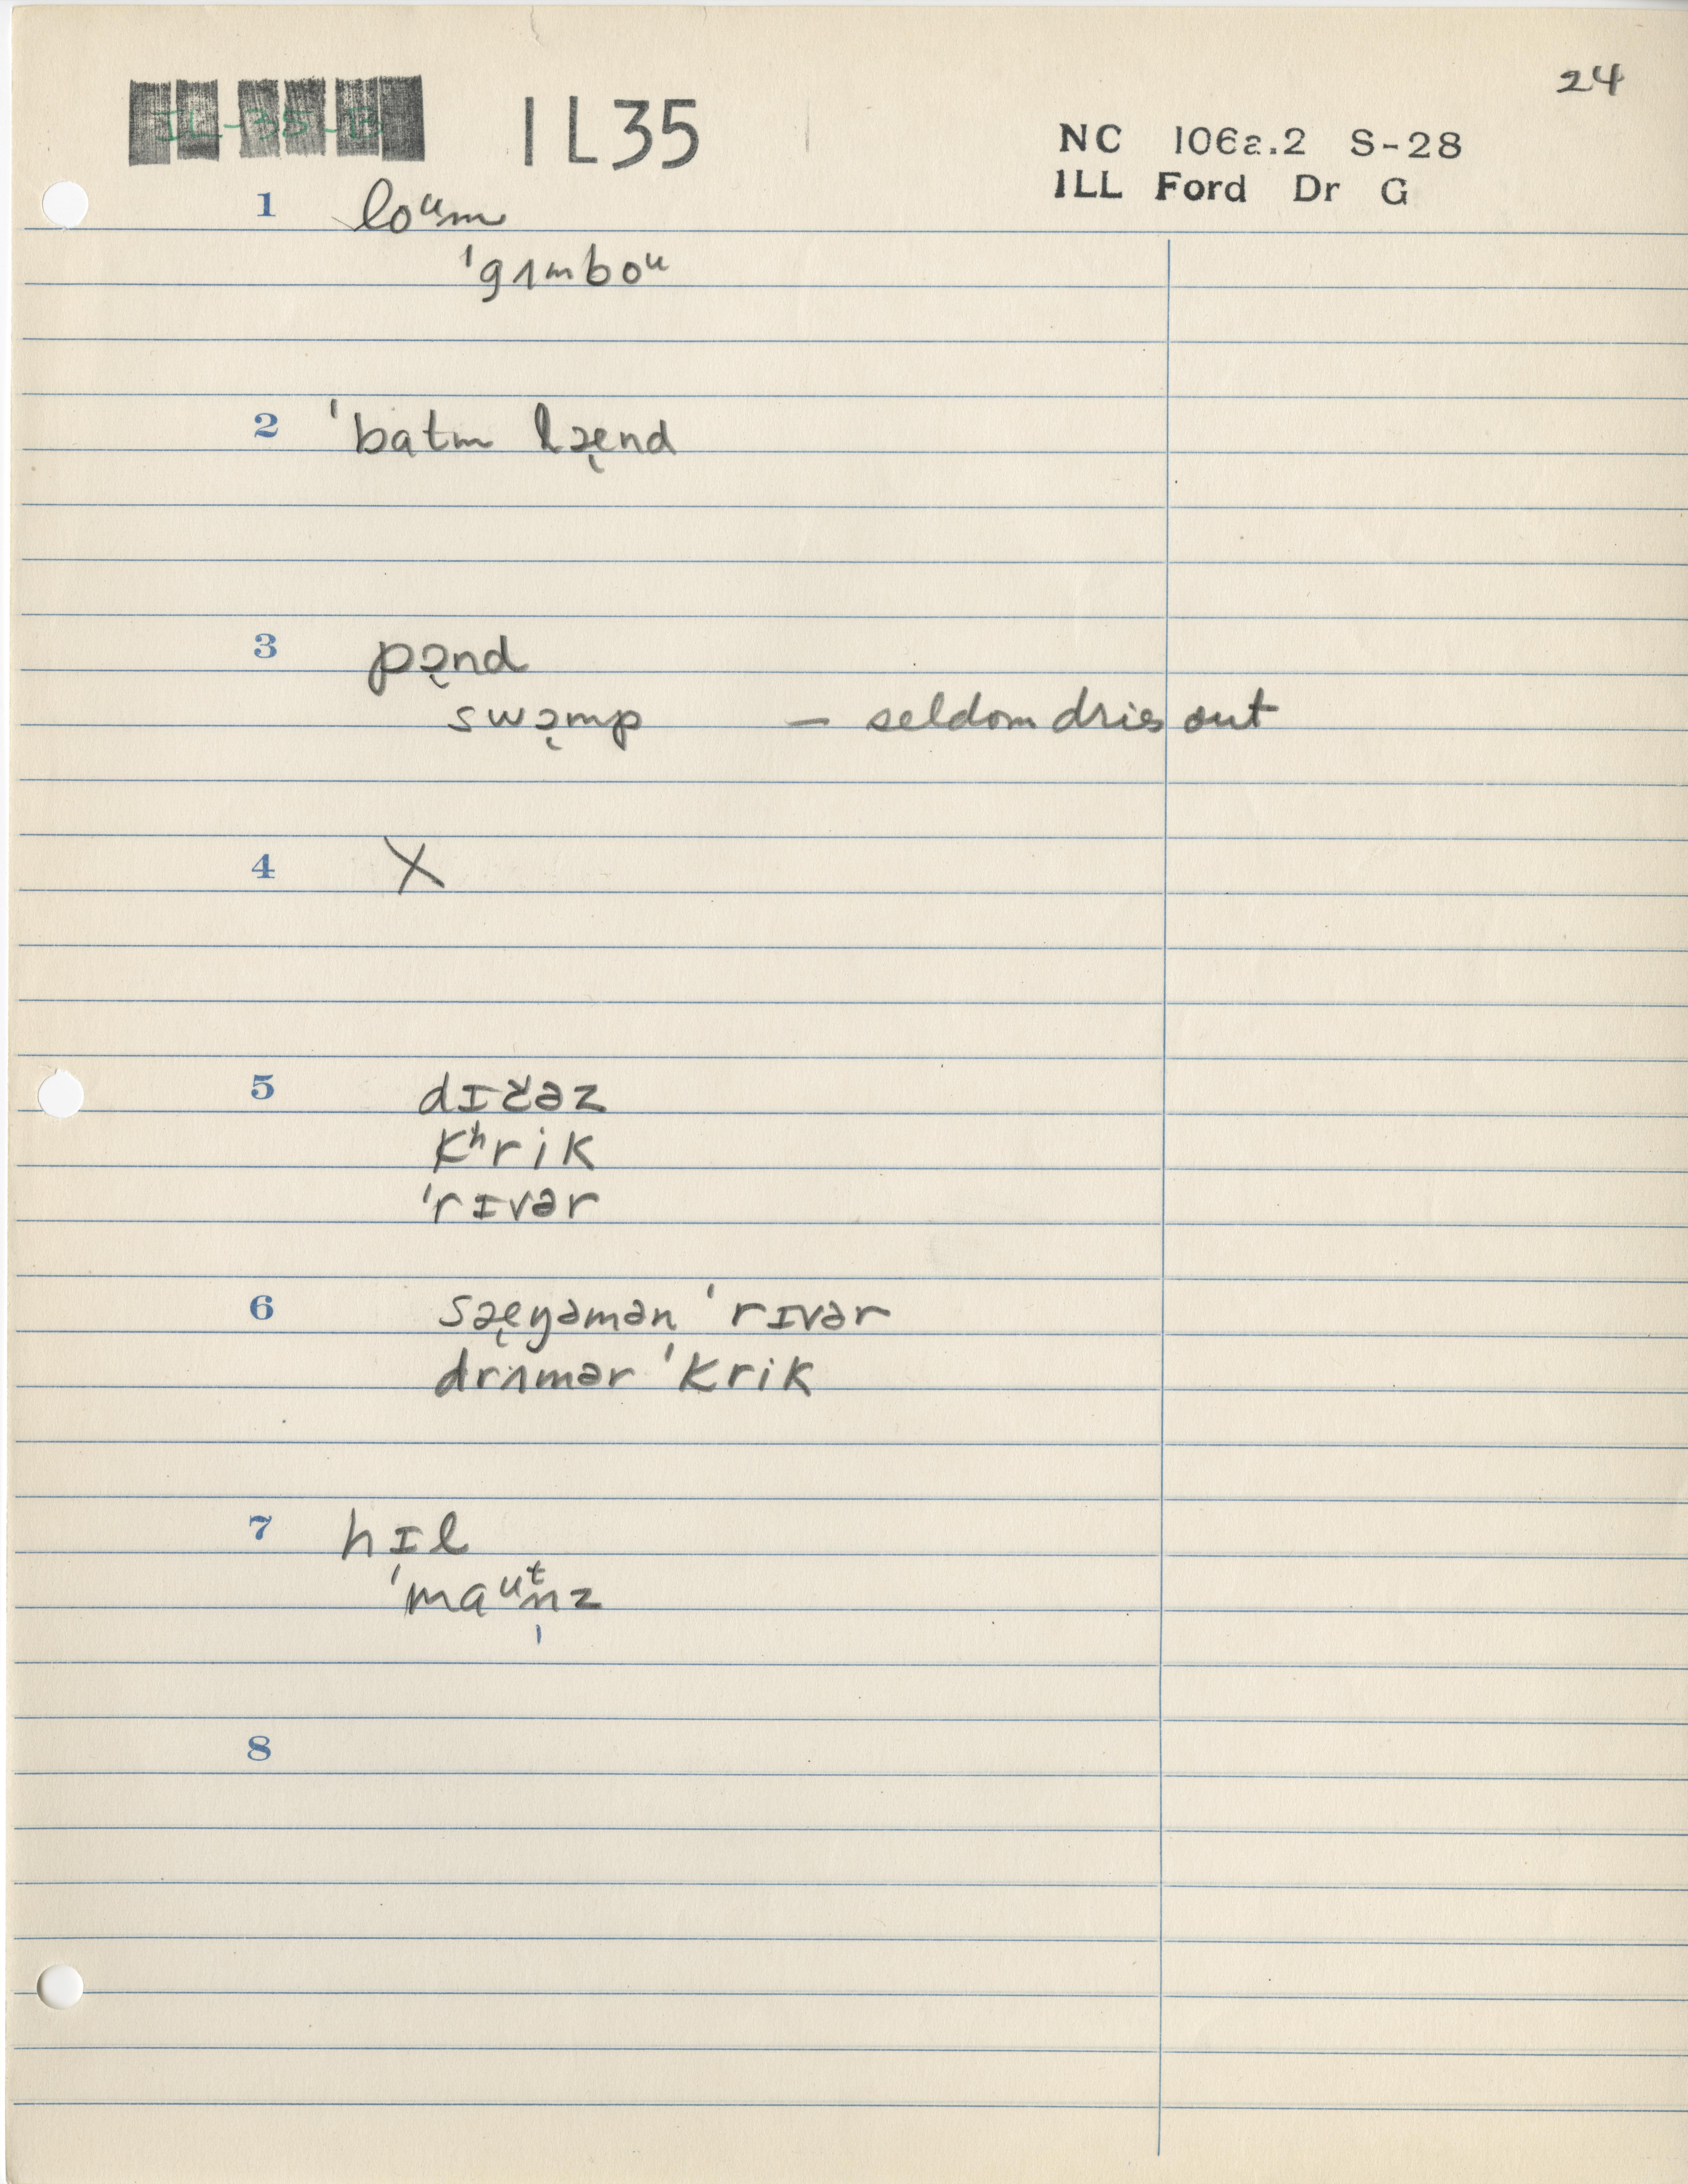 24
IL-35-B IL35
NC 106a.2 S-28
ILL Ford Dr G
1 loᵘm
ˈgɪmboᵘ
2 ˈbatm læ̨nd
3 pɔ̨nd
swɔ̨mp – seldom dries out
4 X
5 dɪčəz
kʰrik
ˈrɪvər
6 sæ̨ŋəmən ˈrɪvər
drʌmər ˈkrik
7 hɪl
ˈmaᵘᵗn̩z
8